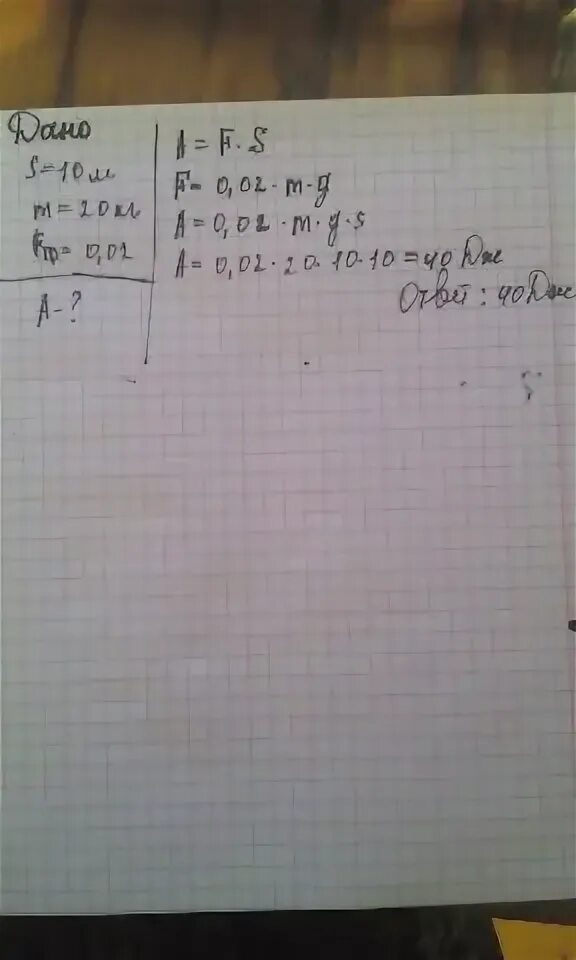 Дано
S=10м
m=20кг
Fтр=0,02
A-?
A=F·S
F=0,02·m·g
A=0,02·m·g·s
A=0,02·20·10·10=40Дж
Ответ: 40Дж